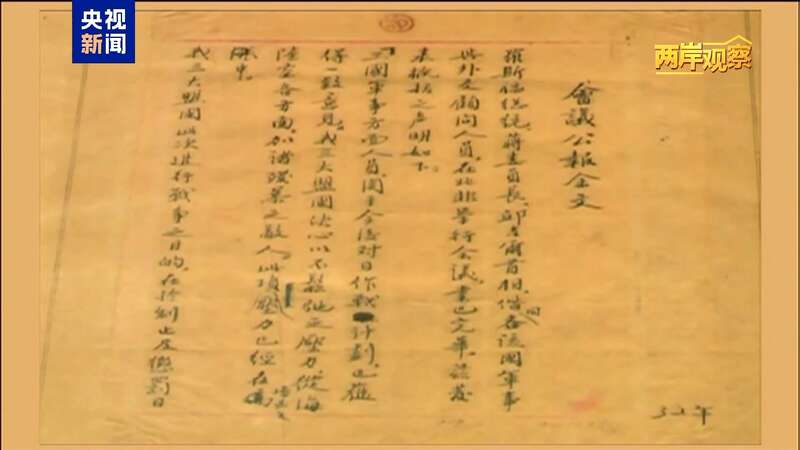 央视新闻
两岸观察
會議公報全文
羅斯福總統、蔣委員長、邱吉爾首相、偕同各該國軍事
與外交顧問人員、在北非舉行會議、業已完畢、茲發
表概括之声明如下。
三國軍事方面人員、関于今後对日作戰計劃、已獲
得一致意見、我三大盟國决心以不鬆弛之壓力、從海
陸空各方面、加諸殘暴之敵人、此項壓力已經在增長之
中。
我三大盟國此次進行戰爭之目的、在於制止及懲罰日
32年